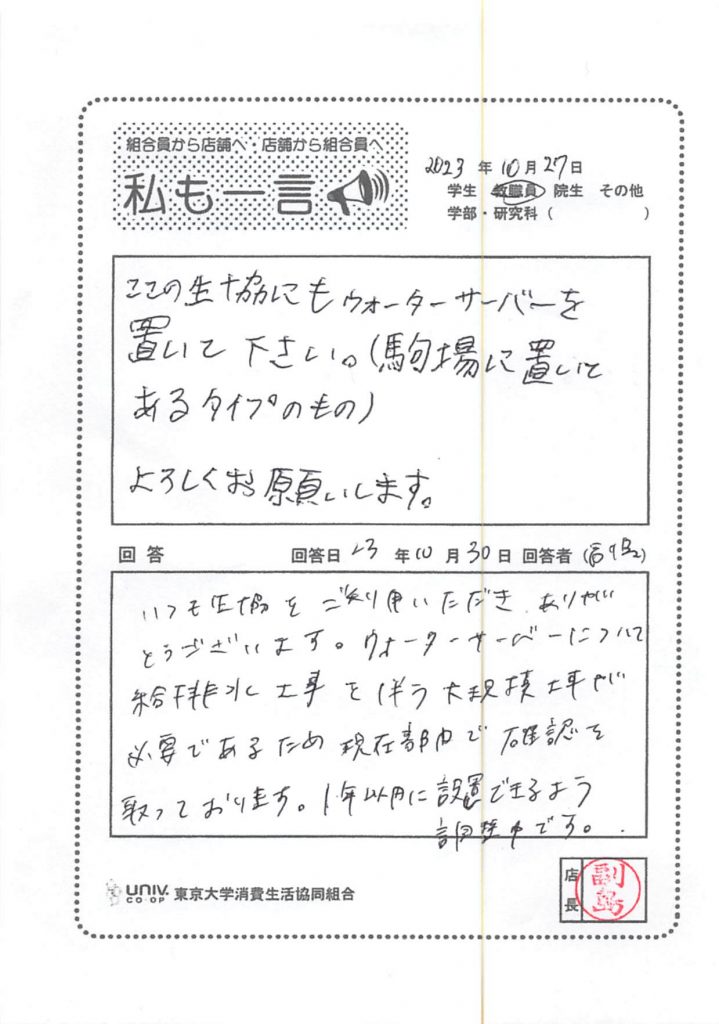 組合員から店舗へ・店舗から組合員へ
私も一言
2023 年 10 月 27 日
学生 教職員 院生 その他
学部・研究科（ ）
ここの生協にもウォーターサーバーを
置いて下さい。(駒場に置いて
あるタイプのもの)
よろしくお願いします。
回答 回答日 23 年 10 月 30 日 回答者
いつも生協をご利用いただき、ありが
とうございます。ウォーターサーバーについて
給排水工事を伴う大規模工事が
必要であるため現在部内で確認を
取っております。1年以内に設置できるよう
調整中です。
UNIV. CO-OP 東京大学消費生活協同組合
店長
副島